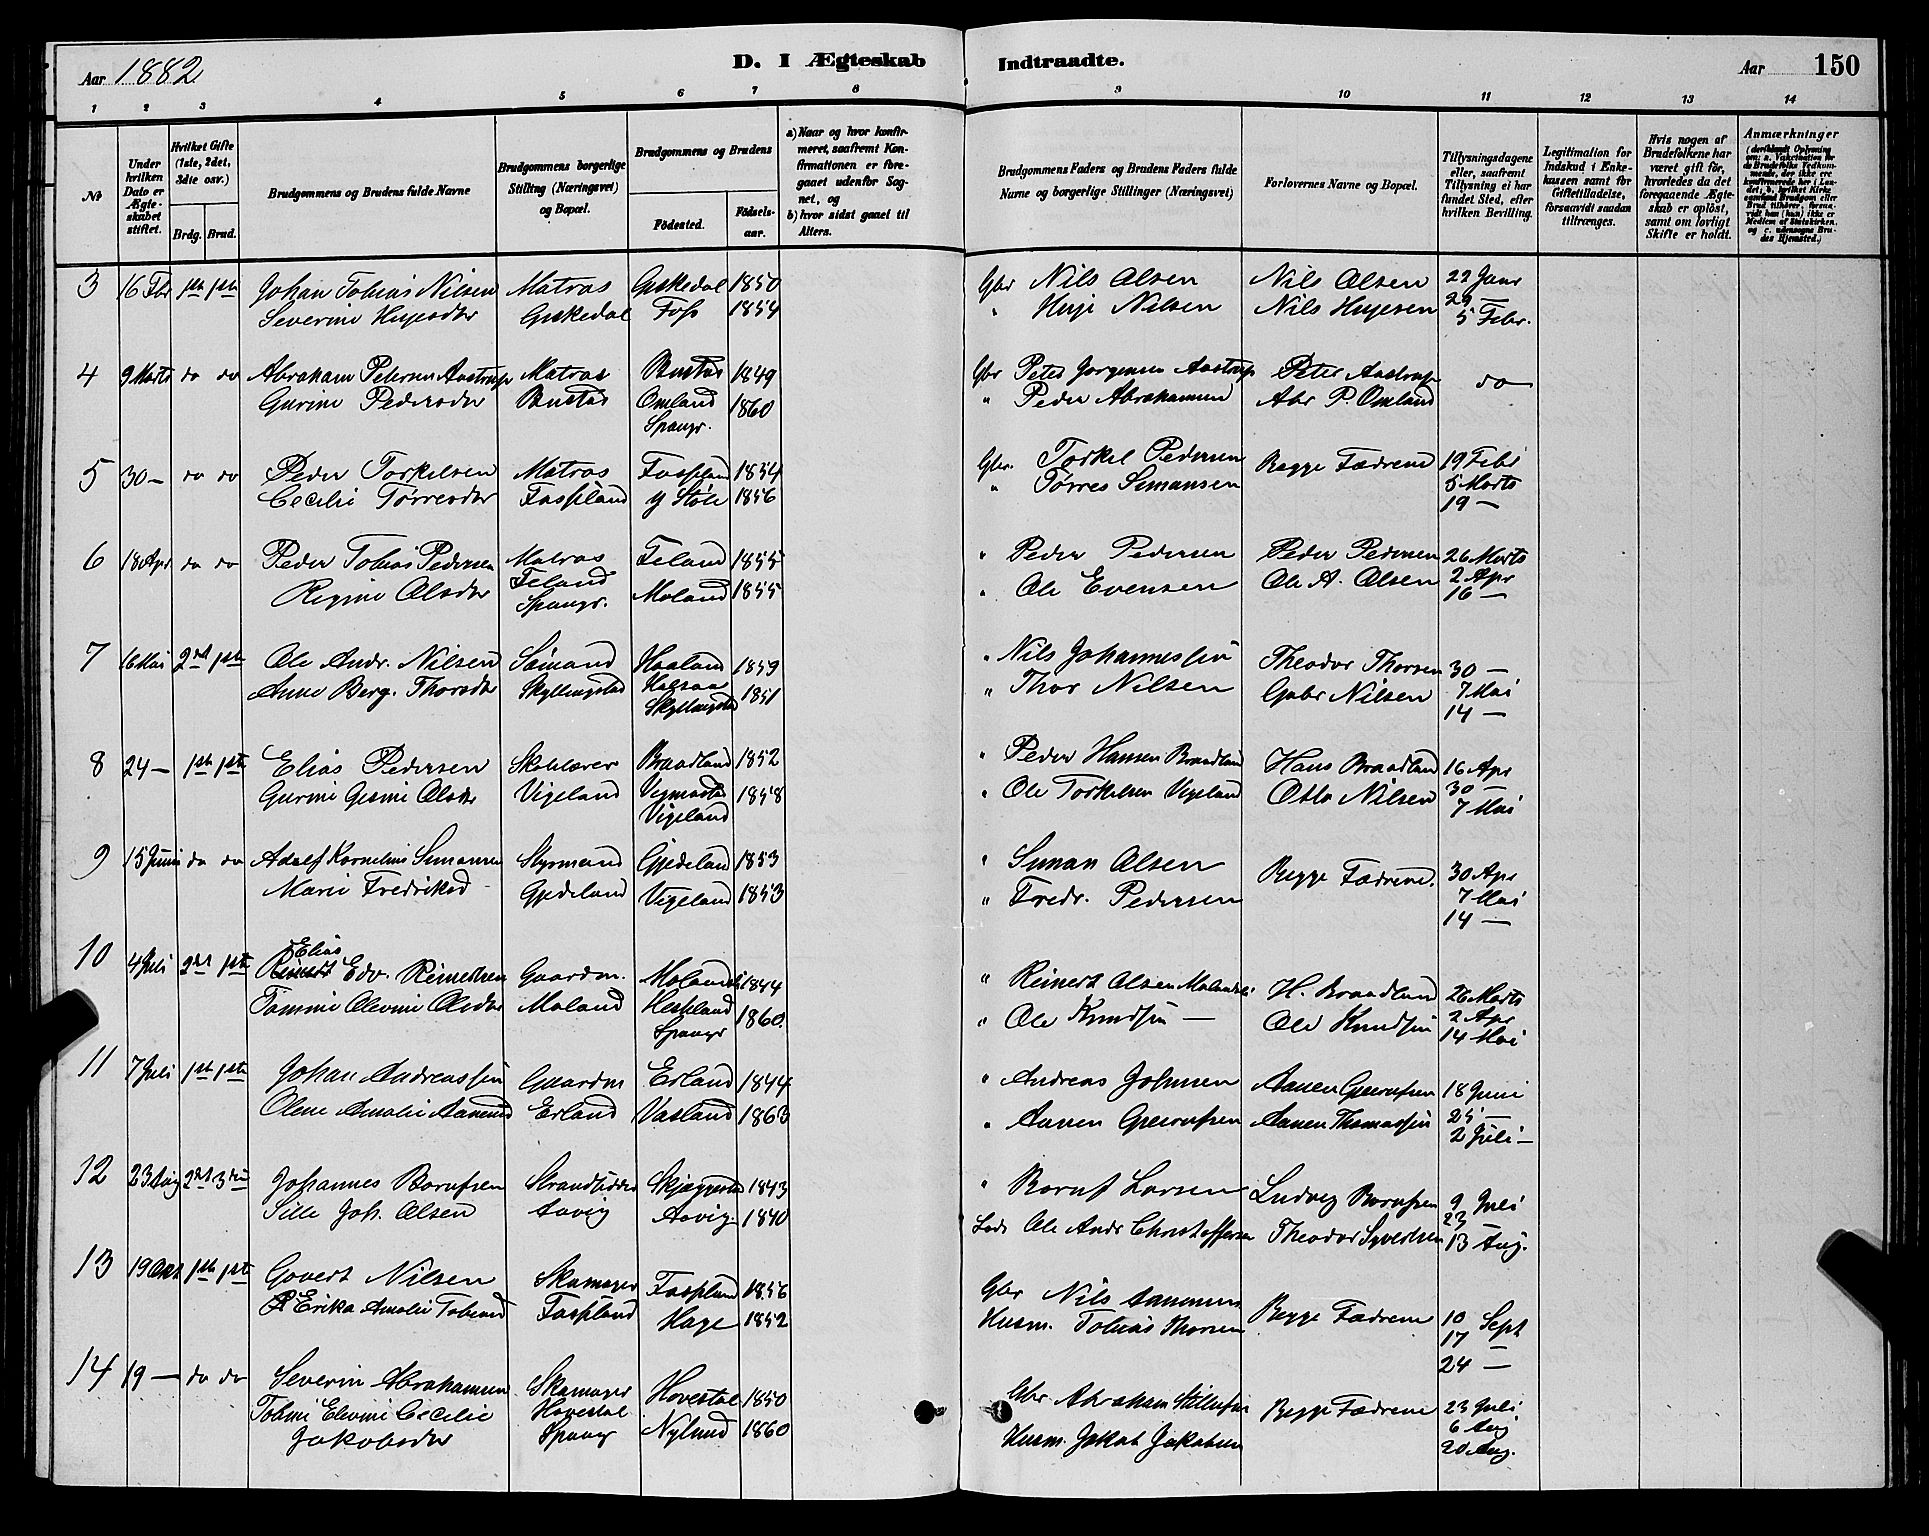 Aar 1882
D. I Ægteskab Indtraadte.
Aar 150
1 2 3 4 5 6 7 8 9 10 11 12 13 14
No
Under hvilken Dato er Ægteskabet stiftet.
Hvilket Gifte (1ste, 2det, 3die osv.)
Brdg. Brud.
Brudgommens og Brudens fulde Navne
Brudgommens borgerlige Stilling (Næringsvei) og Bopæl.
Brudgommens og Brudens
Födested.
Födselsaar.
a) Naar og hvor konfirmeret, saafremt Konfirmationen er foregaaet udenfor Sognet, og
b) hvor sidst gaaet til Alters.
Brudgommens Faders og Brudens Faders fulde Navne og borgerlige Stillinger (Næringsvei)
Forlovernes Navne og Bopæl.
Tillysningsdagene eller, saafremt Tillysning ei har fundet Sted, efter hvilken Bevilling.
Legitimation for Indskud i Enkekassen samt for Giftetilladelse, forsaavidt saadan tiltrænges.
Hvis nogen af Brudefolkene har været gift för, hvorledes da det foregaaende Ægteskab er oplöst, samt om lovligt Skifte er holdt.
Anmærkninger
3 16 Fbr 1ste 1ste Johan Tobias Nilsen Matros Geskedal 1850 Gbr Nils Olsen Nils Olsen 22 Janr
Severine Hujesdtr Geskedal Foss 1854 " Huje Nilsen Nils Hujesen 29 —
5 Febr.
4 9 Marts do do Abraham Petersen Aastrup Matros Bustad 1849 Gbr Peter Jørgensen Aastrup Peter Aastrup do
Gurine Pedersdtr Bustad Omland 1860 " Peder Abrahamsen Abr P. Omland
Spangr.
5 30 — do do Peder Torkelsen Matros Faspland 1854 Gbr. Torkel Pedersen Begge Fædrene 19 Febr
Cecilie Tørresdtr Faspland y Støle 1856 " Tørres Simonsen 5 Marts
19 —
6 18 Apr do do Peder Tobias Pedersen Matros Feland 1855 " Peder Pedersen Peder Pedersen 26 Marts
Regine Olsdtr Feland Moland 1855 " Ole Evensen Ole A. Olsen 2 Apr
Spangr. 16 —
7 16 Mai 2det 1ste Ole Andr. Nilsen Sömand Haaland 1859 " Nils Johannessen Theodor Thorsen 30 —
Anne Berg. Thorsdtr Skyllingstad Halsaa 1851 " Thor Nilsen Gabr Nilsen 7 Mai
Skyllingstad 14 —
8 24 — 1ste 1ste Elias Pedersen Skolelærer Braadland 1852 " Peder Hansen Braadland Hans Braadland 16 Apr
Gurine Gesine Olsdtr Vigeland Vigmostad 1858 " Ole Torkelsen Vigeland Otto Nilsen 30 —
Vigeland 7 Mai
9 15 Juni do do Adolf Kornelius Simonsen Styrmand Gjedeland 1853 " Simon Olsen Begge Fædrene. 30 Apr
Marie Fredriksd Gjedeland Vigeland 1853 " Fredr. Pedersen 7 Mai
14 —
10 4 Juli 2det 1ste Elias
Edv. Reinertsen Gaardm. Moland 1844 " Reinert Olsen H. Braadland 26 Marts
Tomine Olevine Olsdtr Moland Heskland 1860. " Ole Knudsen — Ole Knudsen 2 Apr
Spangr 14 Mai
11 7 Juli 1ste 1ste Johan Andreassen Gaardm Erland 1844 " Andreas Johnsen Aanen Gjerulfsen 18 Juni
Olene Amalie Aanensd Erland Vasland 1863 " Aanen Gjerulfsen Aanen Thomassen 25 —
2 Juli —
12 23 Aug 2det 3die Johannes Borufsen Strandsidder Skjeggestad 1843 " Boruf Larsen Ludvig Borufsen 9 Juli
Sille Joh. Olsen Aavig Aavig 1840 Lods Ole Andr Christoffersen Theodor Syvertsen 23
13 Aug.
13 19 Okt 1ste 1ste Govert Nilsen Skomager Faspland 1856 Gbr Nils Aanensen Begge Fædrene 10 Sept
Erika Amalie Tobiasd Faspland Hage 1852 Husm. Tobias Thorsen 17 —
24 —
14 19 — do do Severin Abrahamsen Skomager Hovestal 1850 Gbr Abraham Begge Fædrene 23 Juli
Tobine Elevine Cecilie Hovestal Nylund 1860 Husm. Jakob Jakobsen 6 Aug
Jakobsdtr Spangr 20 Aug.